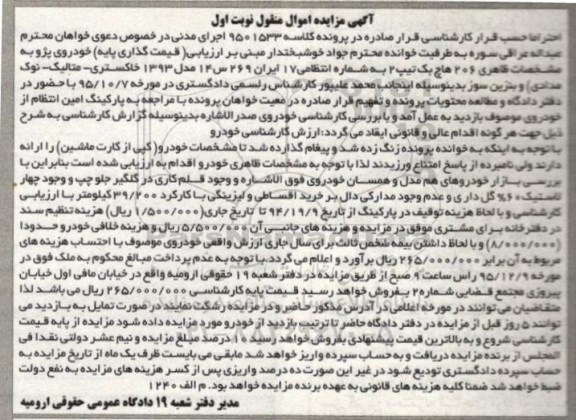 آگهی مزایده اموال منقول نوبت اول
احتراما حسب قرار کارشناسی قرار صادره در پرونده کلاسه 9501533 اجرای مدنی در خصوص دعوی خواهان محترم
عبداله عراقی سوره به طرفیت خوانده محترم جواد خوشبختدار مبنی بر ارزیابی( قیمت گذاری پایه) خودروی پژو به
مشخصات ظاهری 206 هاچ بک تیپ2 به شماره انتظامی17 ایران 269 س14 مدل 1393 خاکستری- متالیک- نوک
مدادی) و بنزین سوز بدینوسیله اینجانب محمد علیپور کارشناس رسمی دادگستری در مورخه 95/10/7 با حضور در
دفتر دادگاه و مطالعه محتویات پرونده و تفهیم قرار صادره در معیت خواهان پرونده با مراجعه به پارکینگ امین انتظام از
خودروی موصوف بازدید به عمل آمد و با بررسی کارشناسی خودروی صدرالاشاره بدینوسیله گزارش کارشناسی به شرح
ذیل جهت هر گونه اقدام عالی و قانونی ایفاد می گردد: ارزش کارشناسی خودرو
با توجه به اینکه به خوانده پرونده زنگ زده شد و پیغام گذارده شد تا مشخصات خودرو( کپی از کارت ماشین) را ارائه
دارند ولی نامبرده از پاسخ امتناع ورزیدند لذا با توجه به مشخصات ظاهری خودرو اقدام به ارزیابی شده است بنابراین با
بررسی بازار خودروهای هم مدل و همسان خودروی فوق الاشاره و وجود قلم کاری در گلگیر جلو چپ و وجود چهار
لاستیک 60% گل داری و عدم وجود مدارکی دال بر خرید اقساطی و لیزینگی با کارکرد 39/200 کیلومتر با ارزیابی
کارشناسی و با لحاظ هزینه توقیف در پارکینگ از تاریخ 94/19/9 تا تاریخ جاری(1/500/000 ریال) هزینه تنظیم سند
در دفترخانه برای مشتری موفق در مزایده و هزینه های جانبی آن 5/500/000 ریال و هزینه خلافی خودرو حدودا
(8/000/000) و با لحاظ داشتن بیمه شخص ثالث برای سال جاری ارزش واقعی خودروی موصوف با احتساب هزینه های
مربوط به آن برابر 265/000/000 ریال برآورد و اعلام می گردد. با توجه به عدم پرداخت مبالغ محکوم به ملک فوق در
مورخه 95/12/9 راس ساعت 9 صبح از طریق مزایده در دفتر شعبه 19 حقوقی ارومیه واقع در خیابان مافی اول خیابان
پیروزی مجتمع قضایی شماره2 بفروش خواهد رسید قیمت پایه کارشناسی 265/000/000 ریال می باشد لذا
متقاضیان می توانند در مورخه اعلامی در آدرس مذکور حاضر و در مزایده شرکت نمایند در صورت تمایل به بازدید می
توانند 5 روز قبل از مزایده در دفتر دادگاه حاضر تا ترتیب بازدید از خودرو مورد مزایده داده شود مزایده از پایه قیمت
کارشناسی شروع و به بالاترین قیمت پیشنهادی بفروش خواهد رسید 10 درصد مبلغ مزایده و نیم عشر دولتی نقدا فی
المجلس از برنده مزایده دریافت و به حساب سپرده واریز خواهد شد مابقی می بایست ظرف یک ماه از تاریخ مزایده به
حساب سپرده دادگستری تودیع شود در غیر این صورت ده درصد واریزی پس از کسر هزینه های مزایده به نفع دولت
ضبط خواهد شد ضمنا کلیه هزینه های قانونی به عهده برنده مزایده خواهد بود. م الف 1240
مدیر دفتر شعبه 19 دادگاه عمومی حقوقی ارومیه